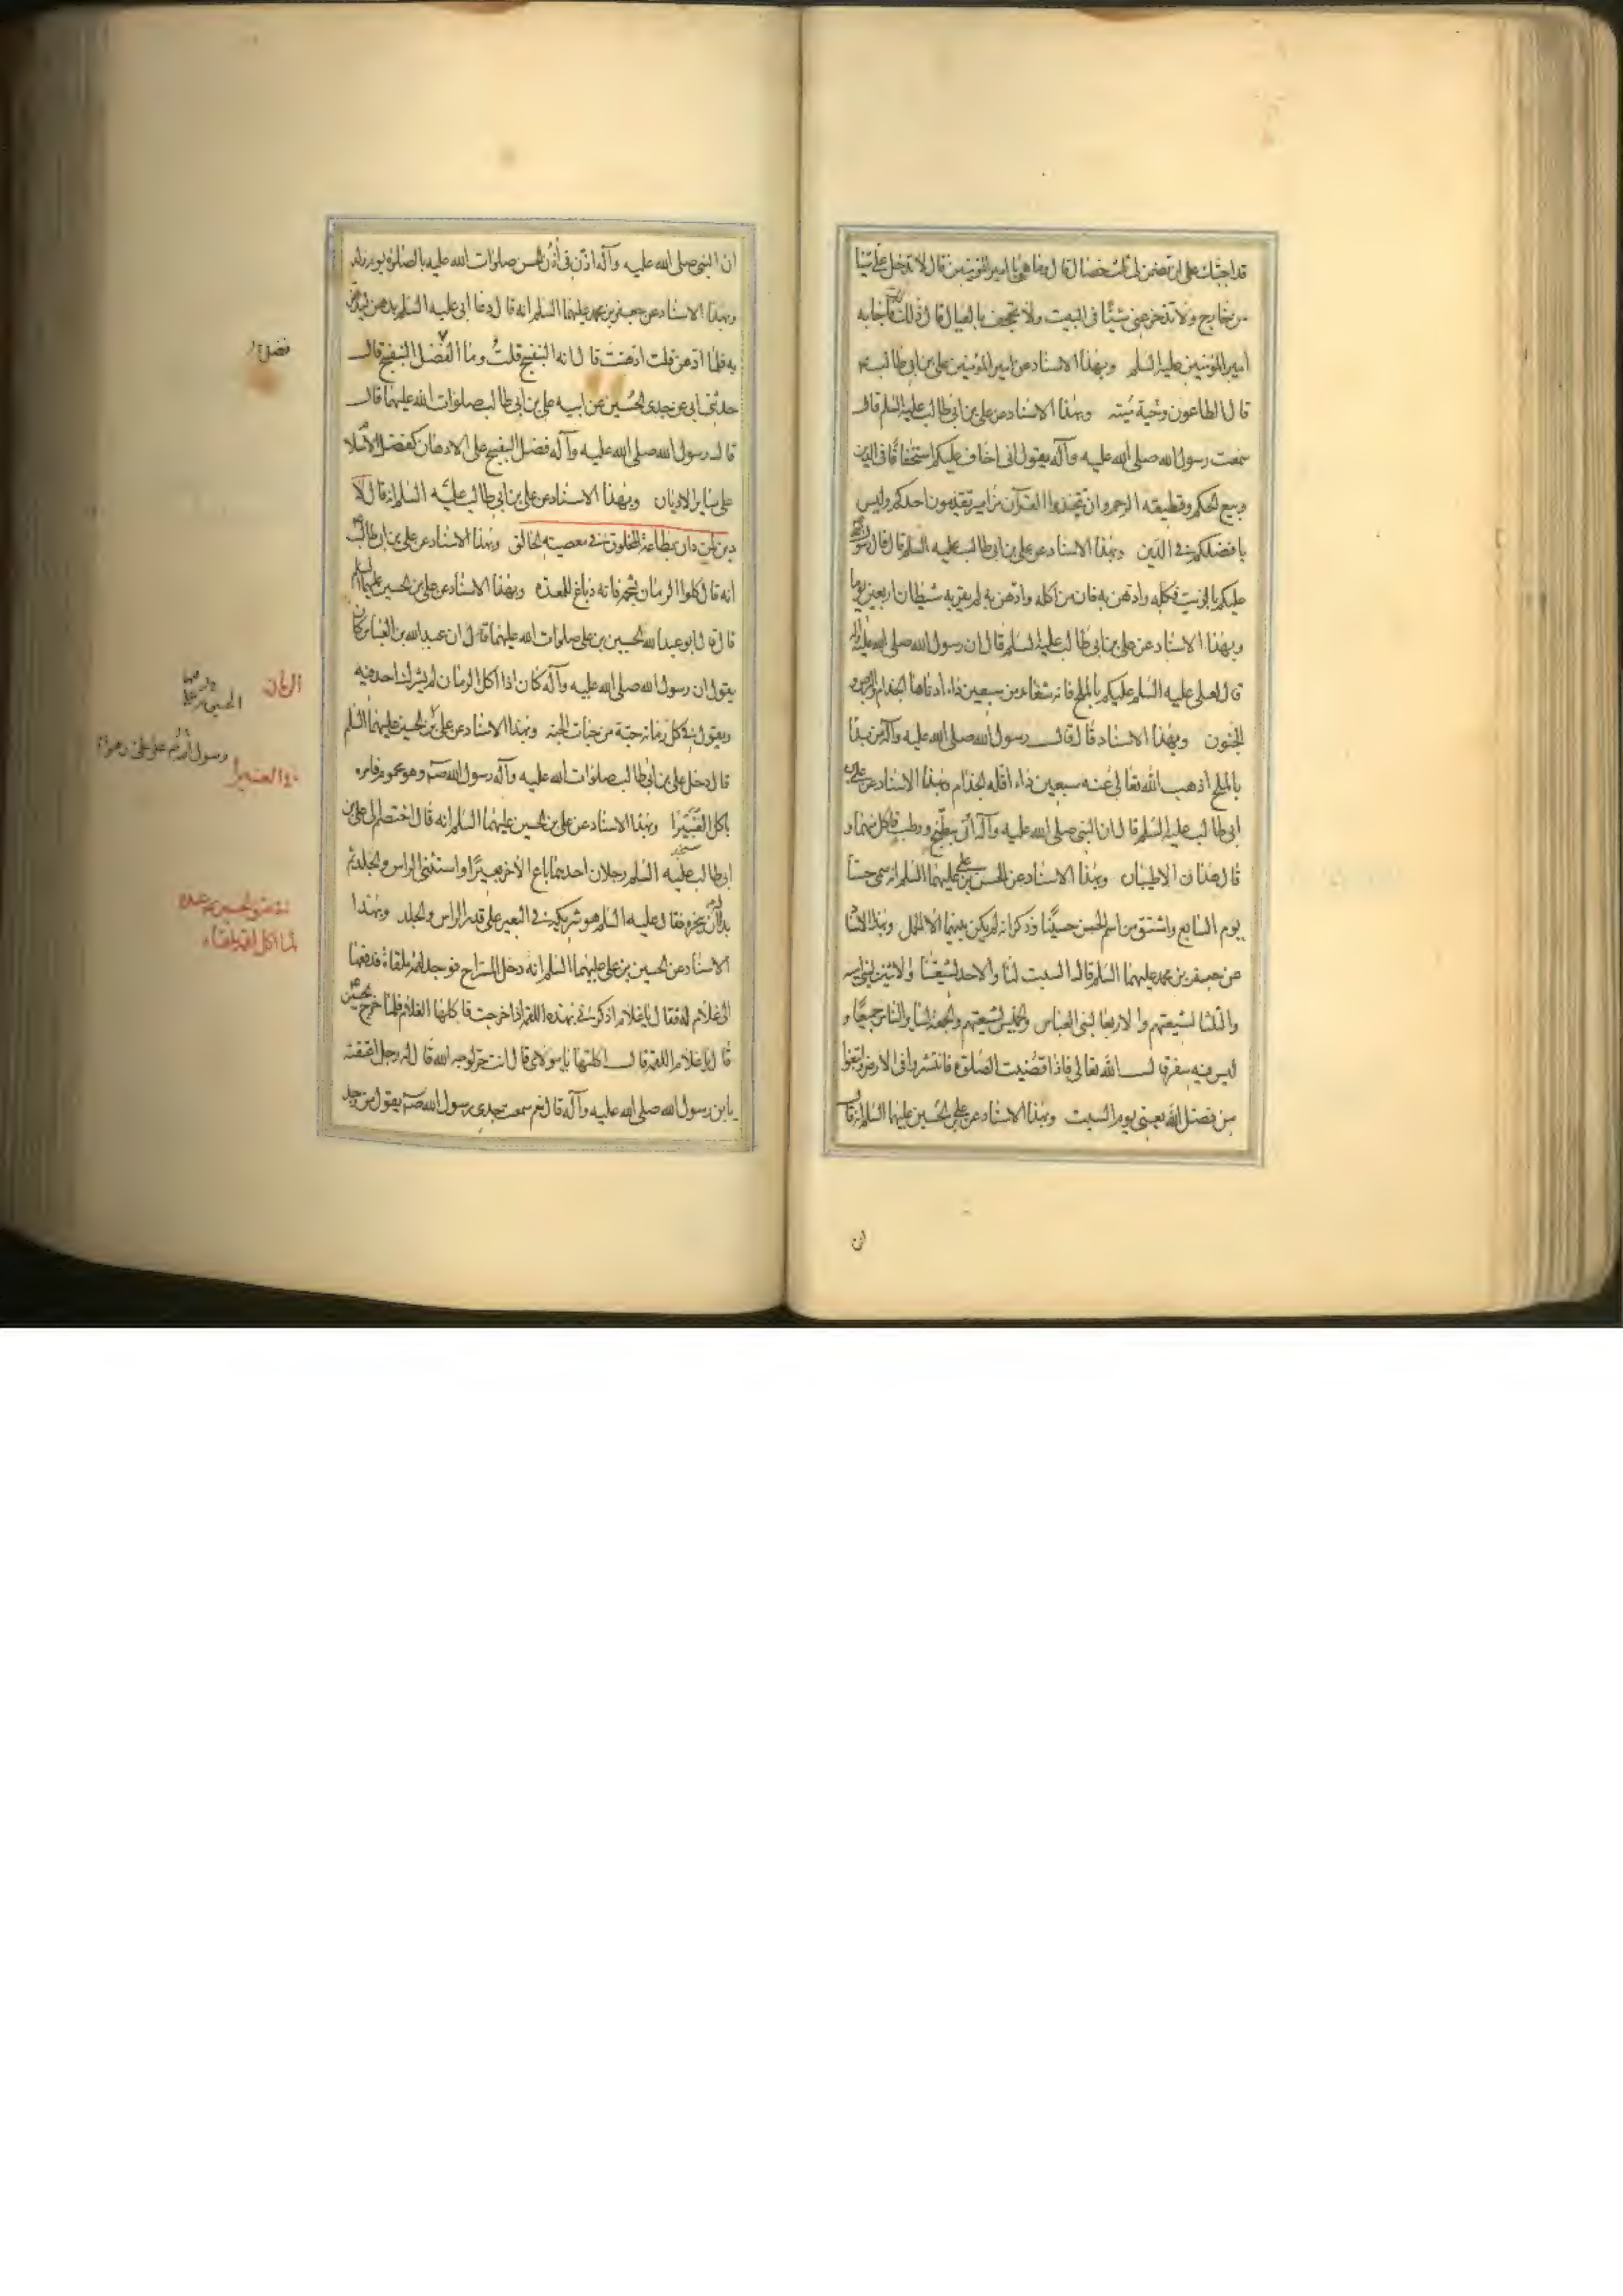 قد اجبتك على ان تضمن لى ثلث خصال قال وما هى يا امير المؤمنين قال لا تدخل على شيئا
من خارج ولا تدخر عنى شيئا فى البيت ولا تجحف بالعيال قال ذلك لك فاجابه
امير المؤمنين عليه السلم وبهذا الاسناد عن امير المؤمنين على بن ابى طالب
قال الطاعون وحية ميتة وبهذا الاسناد عن على بن ابى طالب عليه السلم قال
سمعت رسول الله صلى الله عليه وآله يقول انى اخاف عليكم استخفافا فى الدين
وبيع الحكم وقطيعة الرحم وان تتخذوا القرآن مزامير تقدمون احدكم وليس
بافضلكم فى الدين وبهذا الاسناد عن على بن ابى طالب عليه السلم قال قال رسول الله
عليكم بالزيت فكله وادهن به فان من اكله وادهن به لم يقربه شيطان اربعين يوما
وبهذا الاسناد عن على بن ابى طالب عليه السلم قال ان رسول الله صلى الله عليه وآله
قال لعلى عليه السلم عليكم بالملح فانه شفاء من سبعين داء ادناها الجذام والبرص و
الجنون وبهذا الاسناد قال قال رسول الله صلى الله عليه وآله من بدا
بالملح اذهب الله تعالى عنه سبعين داء اقله الجذام وبهذا الاسناد عن على بن
ابى طالب عليه السلم قال ان النبى صلى الله عليه وآله اتى ببطيخ ورطب فاكل منهما و
قال هذان الاطيبان وبهذا الاسناد عن الحسين بن على عليهما السلم انه سمى حسنا
يوم السابع واشتق من اسم الحسن حسينا وذكر انه لم يكن بينهما الا الحمل وبهذا الاسناد
عن جعفر بن محمد عليهما السلم قال السبت لنا والاحد لشيعتنا والاثنين لبنى امية
والثلثا لشيعتهم والاربعا لبنى العباس والخميس لشيعتهم والجمعة لساير الناس جميعا و
ليس فيه سفر قال الله تعالى فاذا قضيت الصلوة فانتشروا فى الارض وابتغوا
من فضل الله يعنى يوم السبت وبهذا الاسناد عن على بن الحسين عليهما السلم انه قال
ان
ان النبى صلى الله عليه وآله اذن فى اذن الحسن صلوات الله عليه بالصلوة يوم ولد
وبهذا الاسناد عن جعفر بن محمد عليهما السلم انه قال دعا ابى عليه السلم بدهن ليدهن
به فلما ادهن قلت ادهنت قال انه البنفسج قلت وما الفضل البنفسج قال
حدثنى ابى عن جدى الحسين عن ابيه على بن ابى طالب صلوات الله عليهما قال
قال رسول الله صلى الله عليه وآله فضل البنفسج على الادهان كفضل الاسلام
على ساير الاديان وبهذا الاسناد عن على بن ابى طالب عليه السلم انه قال لا
دين لمن دان بطاعة المخلوق فى معصية الخالق وبهذا الاسناد عن على بن ابى طالب
انه قال كلوا الرمان بشحمه فانه دباغ للمعدة وبهذا الاسناد عن على بن الحسين عليهما السلم
قال قال ابو عبد الله الحسين بن على صلوات الله عليهما قال ان عبد الله بن العباس كان
يقول ان رسول الله صلى الله عليه وآله كان اذا اكل الرمان لم يشرك احد فيه
ويقول فى كل رمانة حبة من حبات الجنة وبهذا الاسناد عن على بن الحسين عليهما السلم
قال دخل على بن ابى طالب صلوات الله عليه وآله رسول الله صم وهو محموم فامره
باكل الغبيرا وبهذا الاسناد عن على بن الحسين عليهما السلم انه قال اختصم الى على بن
ابى طالب عليه السلم رجلان احدهما باع الآخر بعيرا واستثنى الراس والجلد ثم
بدا له ان ينحره فقال عليه السلم هو شريكه فى البعير على قدر الراس والجلد وبهذا
الاسناد عن الحسين بن على عليهما السلم انه دخل المستراح فوجد لقمة ملقاة فدفعها
الى غلام له فقال يا غلام اذكرنى بهذه اللقمة اذا خرجت فاكلها الغلام فلما خرج الحسين
قال يا غلام اللقمة قال اكلتها يا مولاى قال انت حر لوجه الله قال له رجل اعتقته
يابن رسول الله صلى الله عليه وآله قال نعم سمعت جدى رسول الله صم يقول من وجد
الرمان